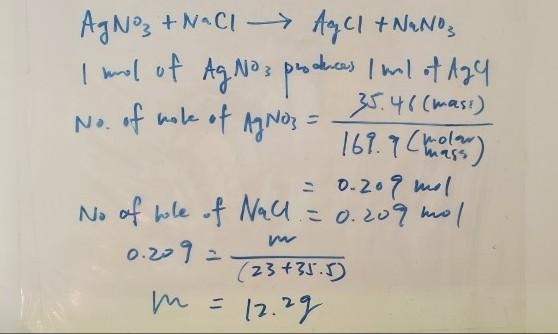 AgNO₃ + NaCl ⟶ AgCl + NaNO₃
1 mol of AgNO₃ produces 1 mol of AgCl
No. of mole of AgNO₃ = 35.46 (mass) / 169.9 (molar mass)
= 0.209 mol
No of mole of NaCl = 0.209 mol
0.209 = m / (23+35.5)
m = 12.2g